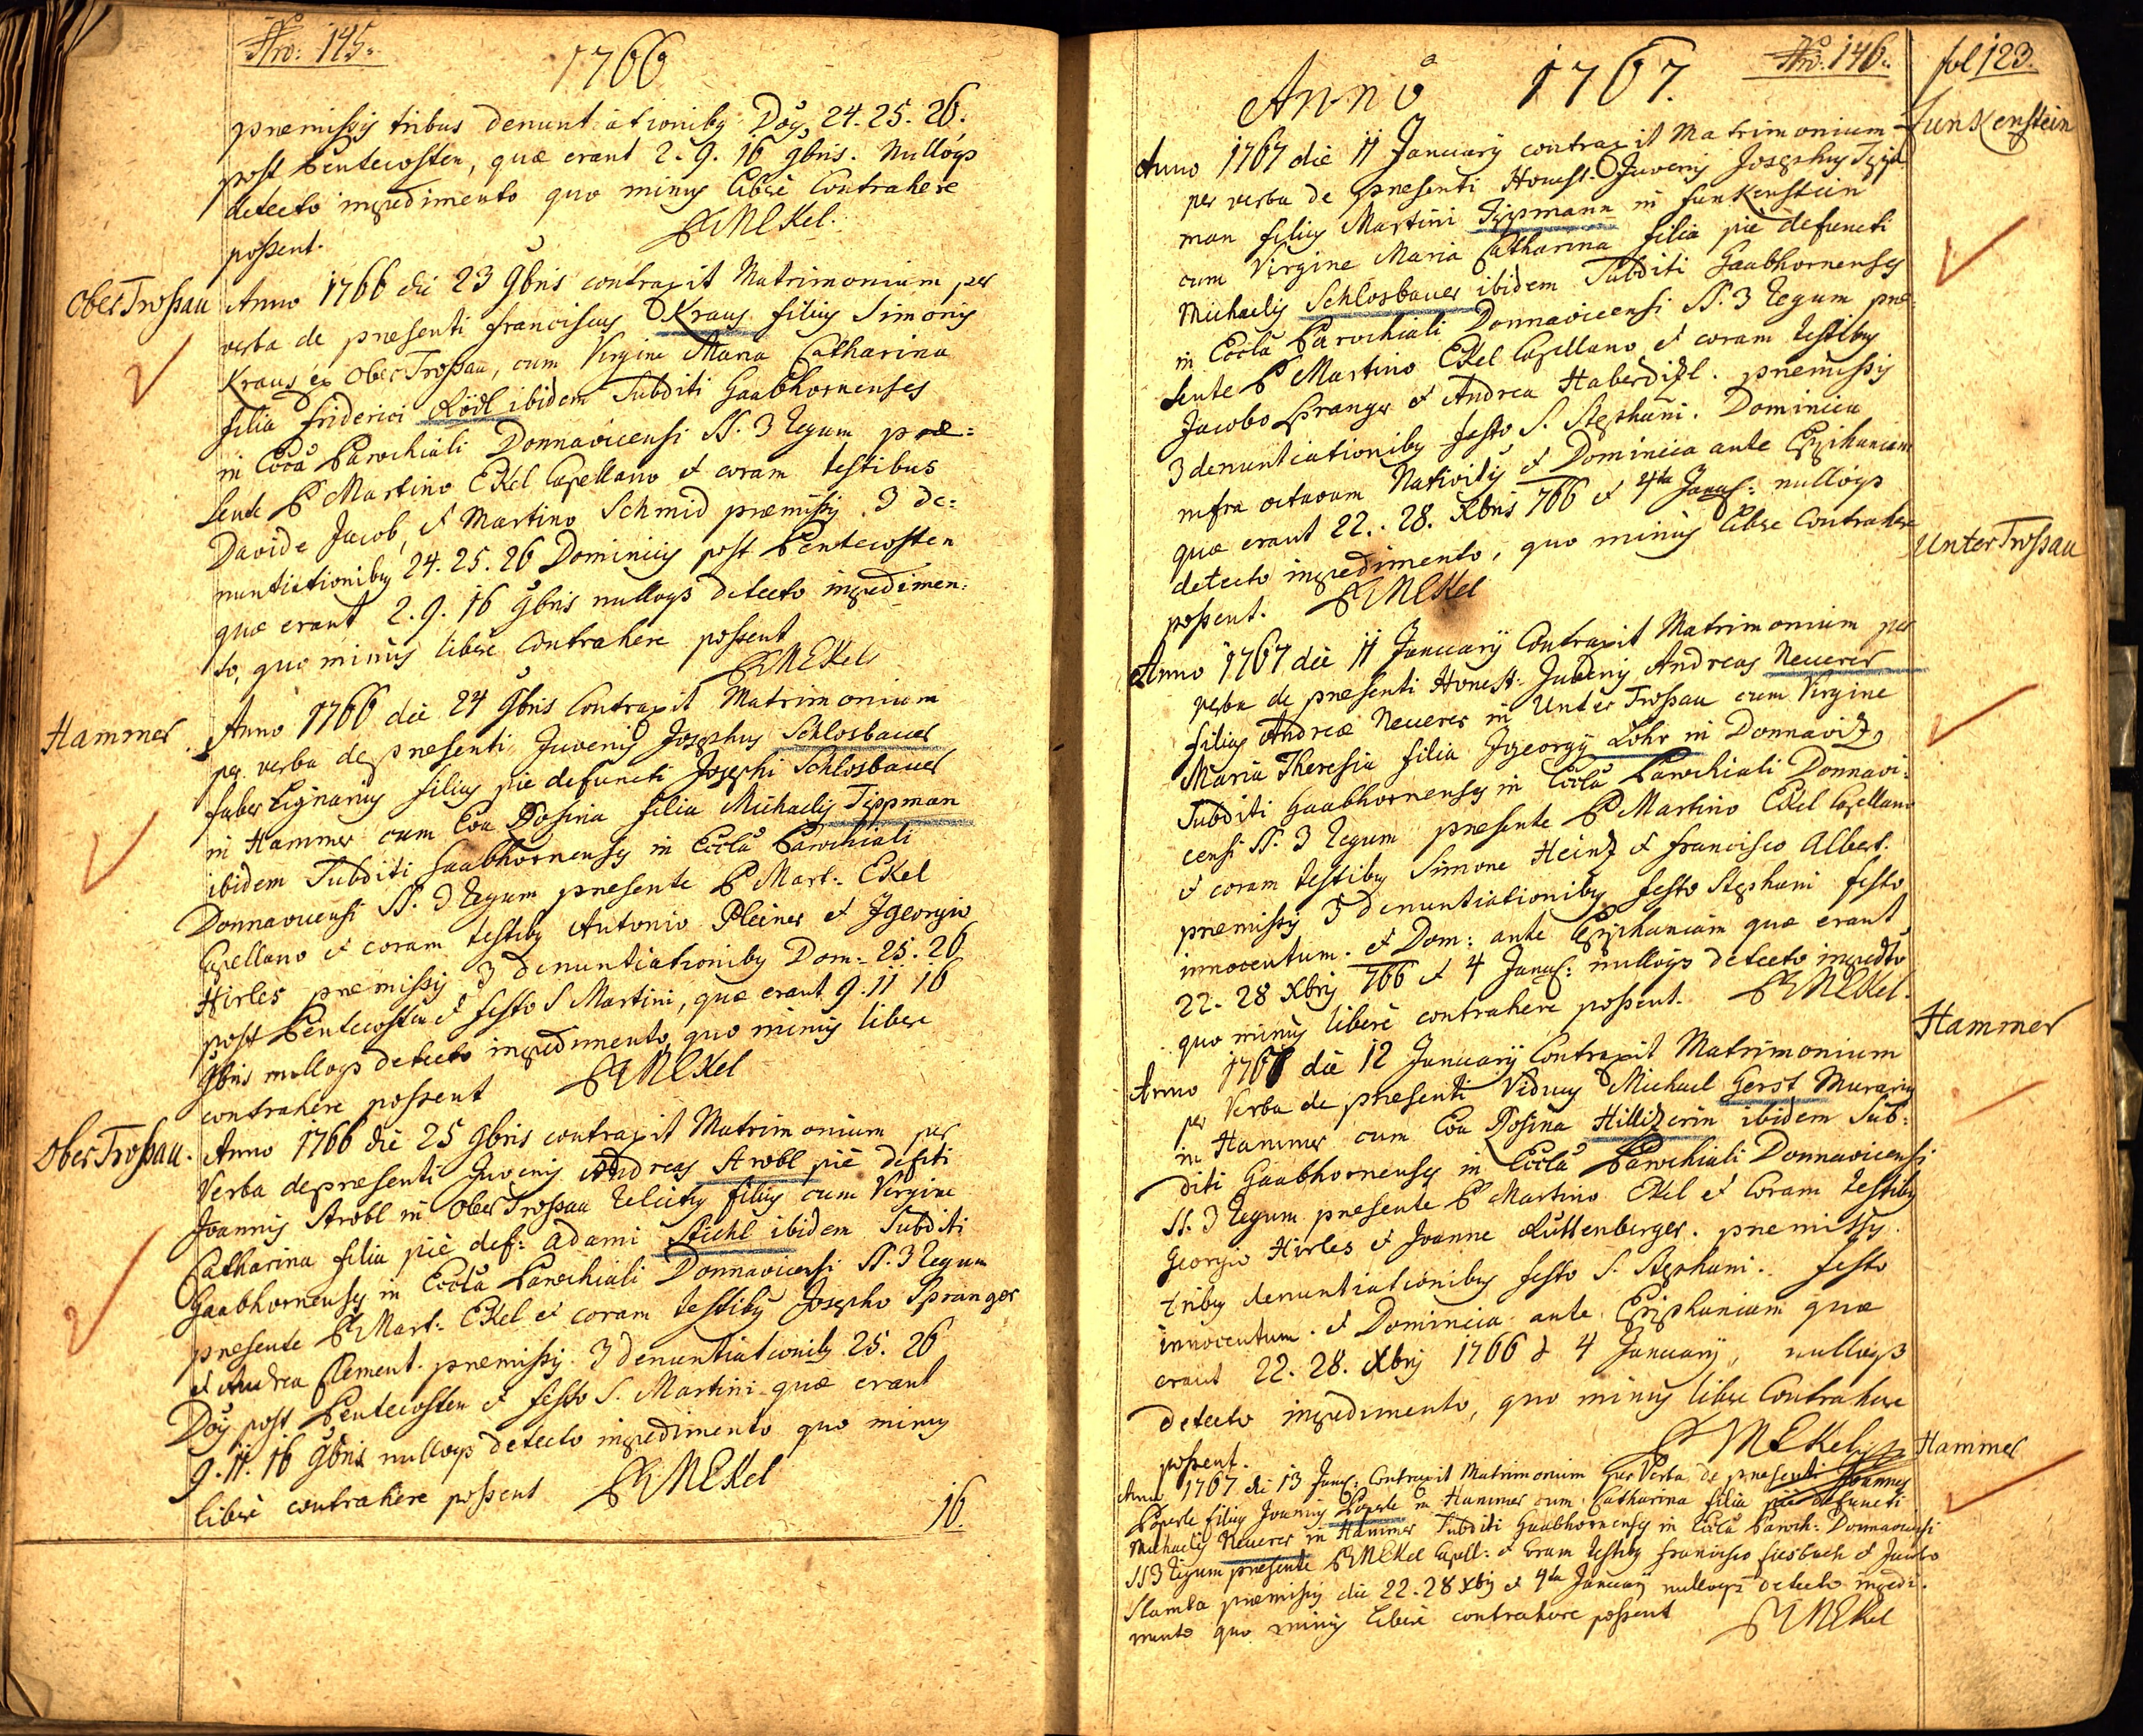 Nro: 145.
1766
præmissis tribus denuntiationibg Doīs 24. 25. 26.
post Pentecosten, quæ erant 2. 9. 16 9bris. Nulloqz
detecto impedimento quo minus liberè Contrahere
possent. PMEKel.
Ober Trossau
Anno 1766 die 23 9bris contraxit Matrimonium per
verba de præsenti franciscus Kraus filius Simonis
Kraus ex Ober Trossau, cum Virgine Maria Catharina
filia friderici Rödl ibidem Subditi Gaabhornenses
in Eccla Parochiali Donnavicensi SS. 3 Regum præ=
sente P Martino EKel Capellano et coram testibus
Davide Jacob, et Martino Schmid præmissis 3 de=
nuntiationibus 24. 25. 26 Dominicis post Pentecosten
quæ erant 2. 9. 16 9bris nulloqz detecto impedimen=
to, quo minus liberè Contrahere possent
PMEKel
Hammer.
Anno 1766 die 24 9bris Contraxit Matrimonium
per verba de præsenti Juvenis Josephus Schlosbauer
faber Lignarius filius pie defuncti Josephi Schlosbauer
in Hammer cum Eva Rosina filia Michaelis Tippman
ibidem Subditi Gaabhornenses in Eccla Parochiali
Donnavicensi SS. 3 Regum præsente P Mart: EKel
Capellano et coram testibg Antonio Pleiner et Jgeorgio
Hirles præmissis 3 denuntiationibg Dom: 25. 26
post Pentecosten et festo S Martini, quæ erant 9. 11 16
9bris nulloqz detecto impedimento, quo minus libere
contrahere possent PMEKel
Ober Trossau.
Anno 1766 die 25 9bris contraxit Matrimonium per
Verba de præsenti Juvenis Andreas Strobl piè defūti
Joannis Strobl in Ober Trossau relictus filius cum Virgine
Catharina filia piè def: adami Stiehl ibidem Subditi
Gaabhornenses in Eccla Parochiali Donnavicensi SS. 3 Regum
præsente P Mart: EKel et coram testibg Josepho Spranger
et Andrea Clement. præmissis 3 denuntiationibg 25. 26
Doīs post Pentecosten et festo S. Martini quæ erant
9. 11. 16 9bris nulloqz detecto impedimento quo minus
liberè contrahere possent PMEKel
16
Nro: 146.
fol 123.
Anno 1767.
Funkenstein
Anno 1767 die 11 Januarÿ contraxit Matrimonium
per verba de præsenti Honest: Juvenis Josephus Tipp
man filius Martini Tippmann in funkenstein
cum Virgine Maria Catharina filia piè defuncti
Michaelis Schlosbauer ibidem Subditi Gaabhornenses
in Eccla Parochiali Donnavicensi SS. 3 Regum præ
sente P Martino EKel Capellano et coram testibg
Jacobo Pranger et Andrea Haberdizl. præmissis
3 denuntiationibg festo S. Stephani. Dominica
infra octavam Nativitis et Dominica ante Epiphaniam
quæ erant 22. 28. Xbris 766 et 4ta Janua: nulloqz
detecto impedimento, quo minus liberè Contrahere
possent. PMEKel
Unter Trossau
Anno 1767 die 11 Januarÿ Contraxit Matrimonium per
verba de præsenti Honest: Juvenis Andreas Neuerer
filius Andreæ Neuerer in Unter Trossau cum Virgine
Maria Theresia filia Jgeorgÿ Löhr in Donnaviz
Subditi Gaabhornenses in Eccla Parochiali Donnavi=
censi SS. 3 Regum præsente P Martino EKel Capellano
et coram testibg Simone Heinz et francisco Albert.
præmissis 3 denuntiationibg festo Stephani festo
innocentum. et Dom: ante Epiphaniam quæ erant
22. 28 Xbris 766 et 4 Janua: nulloqz detecto impedto
quo minus liberè contrahere possent. PMEKel.
Hammer
Anno 1767 die 12 Januarÿ Contraxit Matrimonium
per Verba de præsenti Viduus Michael Gerst Murarius
in Hammer cum Eva Rosina Hillizerin ibidem Sub=
diti Gaabhornenses in Eccla Parochiali Donnavicensi
SS. 3 Regum præsente P Martino EKel et Coram testibg
Georgio Hirles et Joanne Ruttenberger. præmissis
tribus denuntiationibus festo S. Stephani. festo
innocentum. et Dominica ante Epiphaniam quæ
erant 22. 28. Xbris 1766 & 4 Januarÿ, nulloqz
detecto impedimento, quo minus liberè Contrahere
possent. PMEKel
Hammer
Anno 1767 die 13 Janua: Contraxit Matrimonium per Verba de præsenti Joannes
Päperle filius Joannis Päperle in Hammer cum Catharina filia piè defuncti
Michaelis Neuerer in Hammer Subditi Gaabhornenses in Eccla Paroch: Donnavicensi
SS 3 Regum præsente PMEKel Capell: et Coram testibg francisco fiesbach et Jacobo
Slamba præmissis die 22. 28 Xbris et 4ta Januarÿ nulloqz detecto impedi=
mento quo minus liberè contrahere possent PMEKel